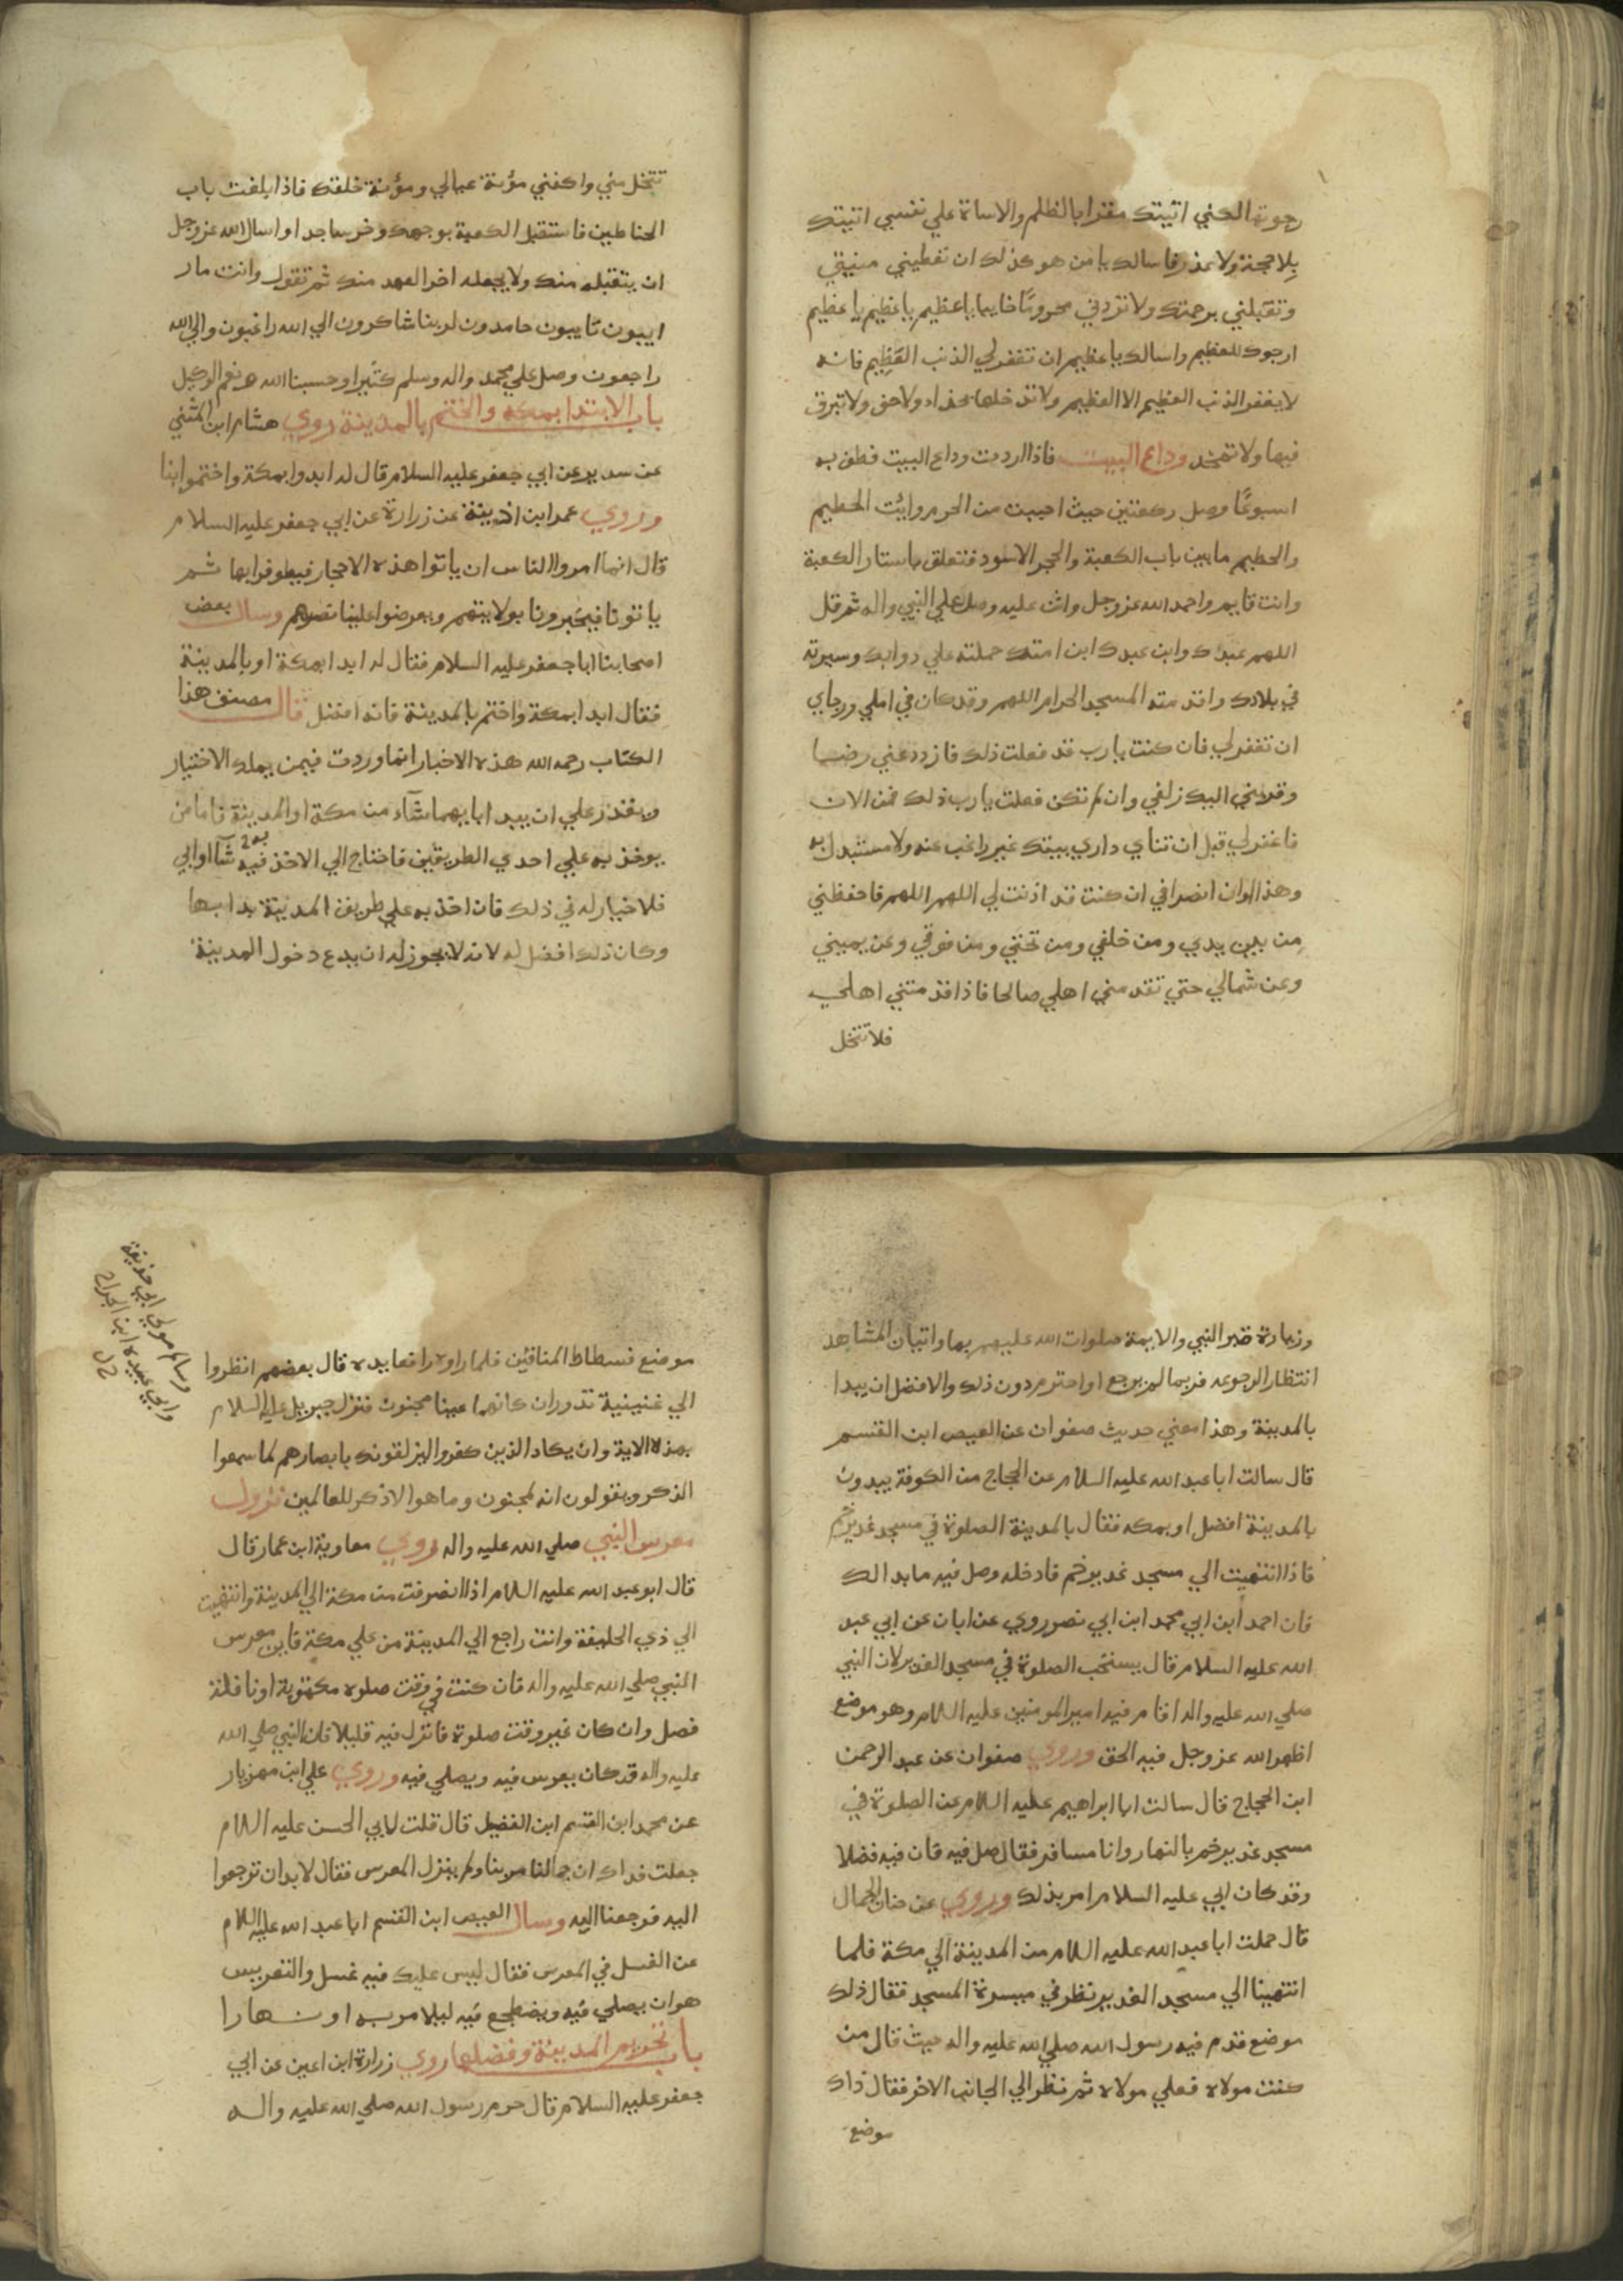 رجوته الكني اتيتك مقرا بالظلم والاساة علي نفسي اتيتك
بلا حجة ولا عذر فاسالك يا من هو كذلك ان تعطيني منيتي
وتقبلني برحمتك ولا تردني محروما خايبا يا عظيم يا عظيم يا عظيم
ارجوك للعظيم واسالك يا عظيم ان تغفر لي الذنب العظيم فانه
لا يغفر الذنب العظيم الا العظيم ولا تدخلها بحذاء ولا خف ولا تبزق
فيها ولا تمتخط وداع البيت فاذا اردت وداع البيت فطف به
اسبوعا وصل ركعتين حيث احببت من الحرم وائت الحطيم
والحطيم ما بين باب الكعبة والحجر الاسود فتعلق باستار الكعبة
وانت قايم واحمد الله عز وجل واثن عليه وصل علي النبي واله ثم قل
اللهم عبدك وابن عبدك ابن امتك حملته علي دوابك وسيرته
في بلادك واقدمته المسجد الحرام اللهم وقد كان في املي ورجاي
ان تغفر لي فان كنت يا رب قد فعلت ذلك فازدد عني رضا
وقربني اليك زلفي وان لم تكن فعلت يا رب ذلك فمن الان
فاغفر لي قبل ان تناي داري ببيتك غير راغب عنه ولا مستبدل به
وهذا اوان انصرافي ان كنت قد اذنت لي اللهم اللهم فاحفظني
من بين يدي ومن خلفي ومن تحتي ومن فوقي وعن يميني
وعن شمالي حتي تقدمني اهلي صالحا فاذا اقدمتني اهلي
فلا تتخل
تتخل مني واكفني مؤنة عيالي ومؤنة خلقك فاذا بلغت باب
الحناطين فاستقبل الكعبة بوجهك وخر ساجدا واسال الله عز وجل
ان يتقبله منك ولا يجعله اخر العهد منك ثم تقول وانت مار
ايبون تايبون حامدون لربنا شاكرون الي الله راغبون والي الله
راجعون وصل علي محمد واله وسلم كثيرا وحسبنا الله ونعم الوكيل
باب الابتدا بمكه والختم بالمدينة روي هشام ابن المثني
عن سدير عن ابي جعفر عليه السلام قال له ابدوا بمكة واختموا بنا
وروي عمر ابن اذينة عن زرارة عن ابي جعفر عليه السلام
قال انما امروا الناس ان ياتوا هذه الاحجار فيطوفوا بها ثم
ياتونا فيخبرونا بولايتهم ويعرضوا علينا نصرهم وسال بعض
اصحابنا ابا جعفر عليه السلام فقال له ابدا بمكة او بالمدينة
فقال ابدا بمكة واختم بالمدينة فانه افضل قال مصنف هذا
الكتاب رحمه الله هذه الاخبار انما وردت فيمن يملك الاختيار
ويقدر علي ان يبدا بايهما شآء من مكة او المدينة فاما من
يوخذ به علي احدي الطريقين فاحتاج الي الاخذ فيه شآ او ابي
فلا خيار له في ذلك فان اخذ به علي طريق المدينة بدا بها
وكان ذلك افضل له لانه لا يجوز له ان يدع دخول المدينة
وزيارة قبر النبي والايمة صلوات الله عليهم بها واتيان المشاهد
انتظار الرجوعه فربما لم يرجع او احترم دون ذلك والافضل ان يبدا
بالمدينة وهذا معني حديث صفوان عن العيص ابن القسم
قال سالت ابا عبد الله عليه السلام عن الحجاج من الكوفة يبدون
بالمدينة افضل او بمكه فقال بالمدينة الصلوة في مسجد غدير خم
فاذا انتهيت الي مسجد غدير خم فادخله وصل فيه ما بدا لك
فان احمد ابن ابي محمد ابن ابي نصر روي عن ابان عن ابي عبد
الله عليه السلام قال يستحب الصلوة في مسجد الغدير لان النبي
صلي الله عليه واله اقام فيه امير المومنين عليه السلام وهو موضع
اظهر الله عز وجل فيه الحق وروي صفوان عن عبد الرحمن
ابن الحجاج قال سالت ابا ابراهيم عليه السلام عن الصلوة في
مسجد غدير خم بالنهار وانا مسافر فقال صل فيه فان فيه فضلا
وقد كان ابي عليه السلام امر بذلك وروي عن حسان الجمال
قال حملت ابا عبد الله عليه السلام من المدينة الي مكة فلما
انتهينا الي مسجد الغدير نظر في ميسرة المسجد فقال ذلك
موضع قدم فيه رسول الله صلي الله عليه واله حيث قال من
كنت مولاه فعلي مولاه ثم نظر الي الجانب الاخر فقال ذاك
موضع
وسالم مولي ابي حذيفة
وابي عبيدة ابن الجراح
موضع فسطاط المنافقين فلما راوه رافعا يده قال بعضهم انظروا
الي عينيه تدوران كانهما عينا مجنون فنزل جبريل عليه السلام
بهذه الاية وان يكاد الذين كفروا ليزلقونك بابصارهم لما سمعوا
الذكر ويقولون انه لمجنون وما هو الا ذكر للعالمين نزول
معرس النبي صلي الله عليه واله روي معاوية ابن عمار قال
قال ابو عبد الله عليه السلام اذا انصرفت من مكة الي المدينة وانتهيت
الي ذي الحليفة وانت راجع الي المدينة من علي مكة فاين معرس
النبي صلي الله عليه واله فان كنت في وقت صلوه مكتوبة او نافلة
فصل وان كان غير وقت صلوة فانزل فيه قليلا فان النبي صلي الله
عليه واله قد كان يعرس فيه ويصلي فيه وروي علي ابن مهزيار
عن محمد ابن القسم ابن الفضيل قال قلت لابي الحسن عليه السلام
جعلت فداك ان جمالنا مر بنا ولم ينزل المعرس فقال لا بد ان ترجعوا
اليه فرجعنا اليه وسال العيص ابن القسم ابا عبد الله عليه السلام
عن الغسل في المعرس فقال ليس عليك فيه غسل والتعريس
هو ان يصلي فيه ويضطجع فيه ليلا مر به او نهارا
باب تحريم المدينة وفضلها روي زرارة ابن اعين عن ابي
جعفر عليه السلام قال حرم رسول الله صلي الله عليه واله